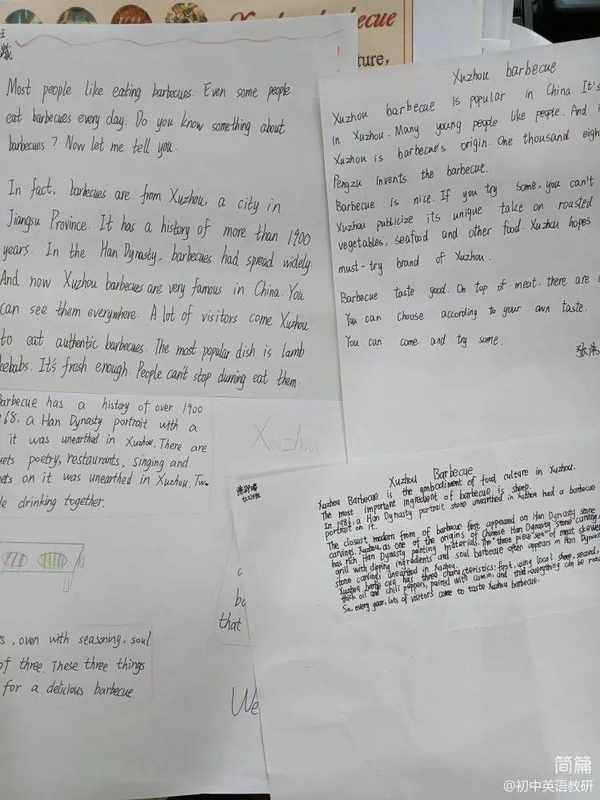 barbecue
ture,
Most people like eating barbecues. Even some people
eat barbecues every day. Do you know something about
barbecues? Now let me tell you.
In fact, barbecues are from Xuzhou, a city in
Jiangsu Province. It has a history of more than 1900
years. In the Han Dynasty, barbecues had spread widely.
And now Xuzhou barbecues are very famous in China. You
can see them everywhere. A lot of visitors come Xuzhou
to eat authentic barbecues. The most popular dish is lamb
kebabs. It's fresh enough. People can't stop eat them
Xuzhou barbecue
Xuzhou barbecue is popular in China. It's
in Xuzhou. Many young people like people. And i
Xuzhou is barbecue's origin. One thousand eigh
Pengzu invents the barbecue.
Barbecue is nice. If you try some, you can't
Xuzhou publicize its unique take on roasted
vegetables, seafood and other food. Xuzhou hopes
must-try brand of Xuzhou.
Barbecue taste good. On top of meat, there are
You can choose according to your own taste.
You can come and try some.
Barbecue has a history of over 1900
68, a Han Dynasty portrait with a
it was unearthed in Xuzhou. There are
uets poetry, restaurants, singing and
ets on it was unearthed in Xuzhou. Tw
le drinking together.
Xuzhou
s, oven with seasoning, soul
of three. These three things
for a delicious barbecue.
that
We
Xuzhou Barbecue
Xuzhou Barbecue is the embodiment of food culture in Xuzhou.
The most important ingredient of barbecue is sheep.
In 1986, a Han Dynasty portrait stone unearthed in Xuzhou had a barbecue
portrait on it.
The closest modern from of barbecue first appeared on Han Dynasty stone
carvings. Xuzhou, as one of the origins of Chinese Han Dynasty stone carving
has rich Han Dynasty painting materials. The "three piece set" of meat skewer
grill with dipping ingredients and soul barbecue often appears in Han Dynas
stone carvings unearthed in Xuzhou.
Xuzhou barbecue has three characteristics: first, using local sheep, second,
thick oil and chili peppers, paired with cumin, and third, everything can be roas
So, every year, lots of visitors come to taste Xuzhou barbecue.
简篇
@初中英语教研